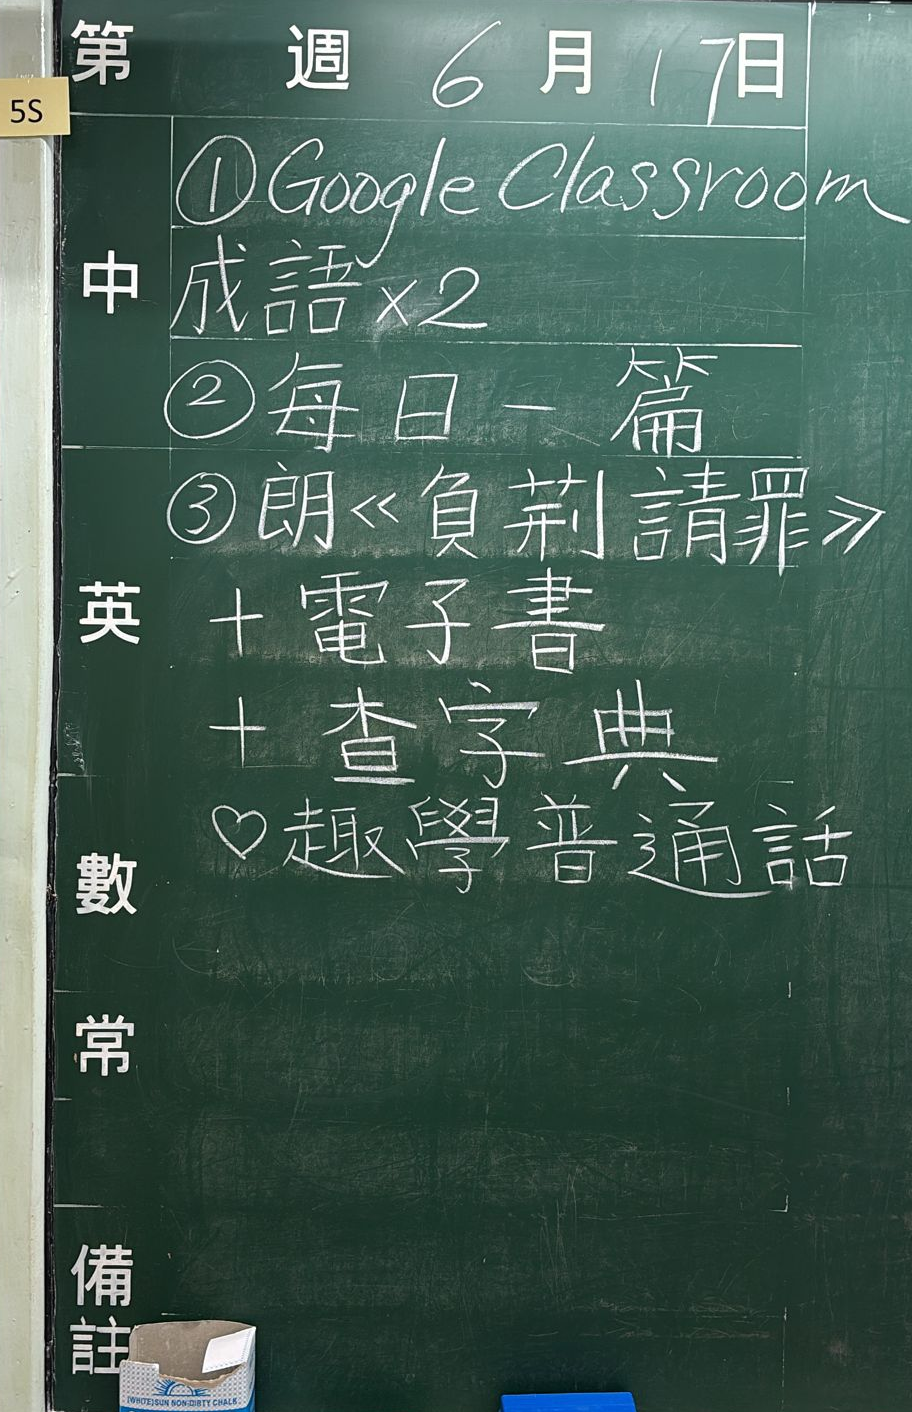 第 週 6 月 17 日
5S
中
① Google Classroom
成語 x2
② 每日一篇
③ 朗《負荊請罪》
英
+ 電子書
+ 查字典
♡ 趣學普通話
數
常
備註
(WHITE)SUN NON-DIRTY CHALK